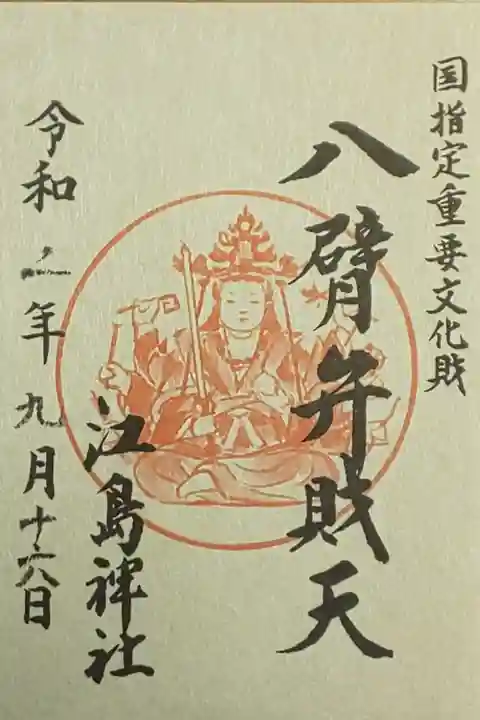 国指定重要文化財
八臂弁財天
江島神社
令和二年九月十六日